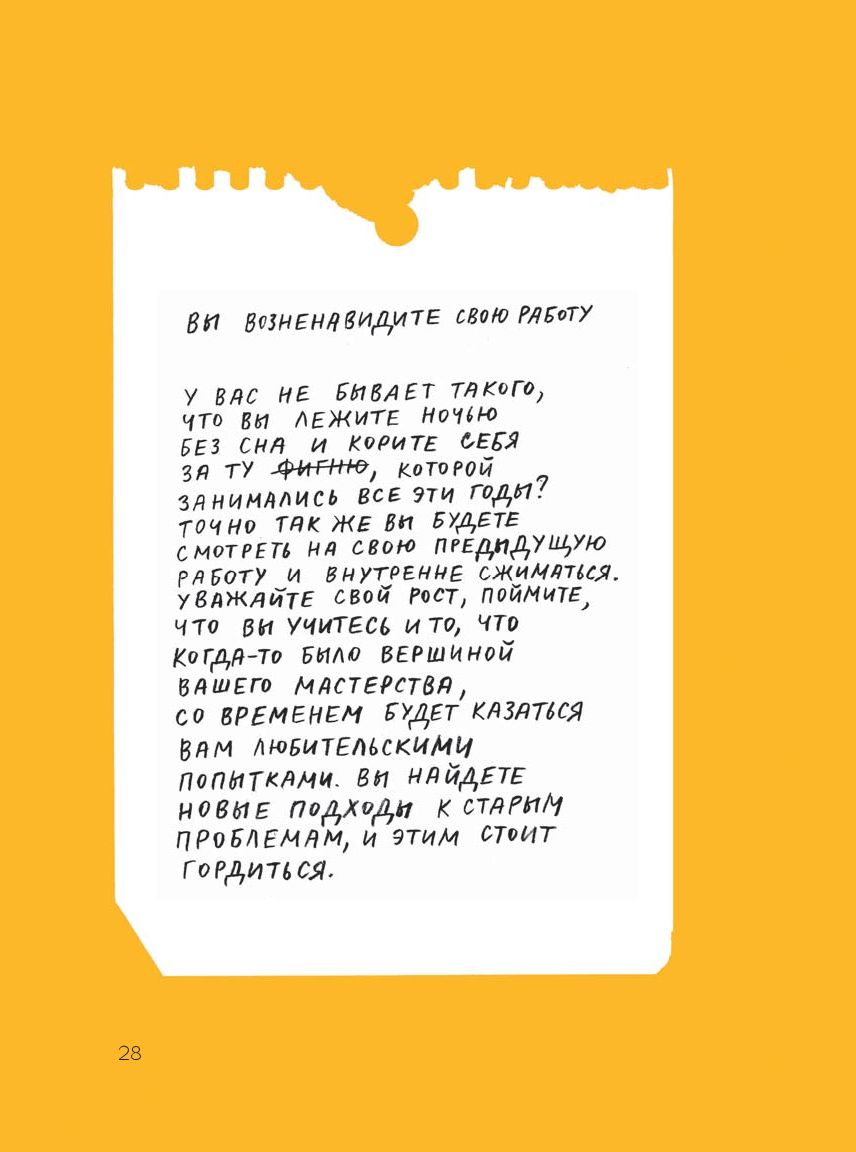 ВЫ ВОЗНЕНАВИДИТЕ СВОЮ РАБОТУ
У ВАС НЕ БЫВАЕТ ТАКОГО,
ЧТО ВЫ ЛЕЖИТЕ НОЧЬЮ
БЕЗ СНА И КОРИТЕ СЕБЯ
ЗА ТУ ФИГНЮ, КОТОРОЙ
ЗАНИМАЛИСЬ ВСЕ ЭТИ ГОДЫ?
ТОЧНО ТАК ЖЕ ВЫ БУДЕТЕ
СМОТРЕТЬ НА СВОЮ ПРЕДЫДУЩУЮ
РАБОТУ И ВНУТРЕННЕ СЖИМАТЬСЯ.
УВАЖАЙТЕ СВОЙ РОСТ, ПОЙМИТЕ,
ЧТО ВЫ УЧИТЕСЬ И ТО, ЧТО
КОГДА-ТО БЫЛО ВЕРШИНОЙ
ВАШЕГО МАСТЕРСТВА,
СО ВРЕМЕНЕМ БУДЕТ КАЗАТЬСЯ
ВАМ ЛЮБИТЕЛЬСКИМИ
ПОПЫТКАМИ. ВЫ НАЙДЕТЕ
НОВЫЕ ПОДХОДЫ К СТАРЫМ
ПРОБЛЕМАМ, И ЭТИМ СТОИТ
ГОРДИТЬСЯ.
28